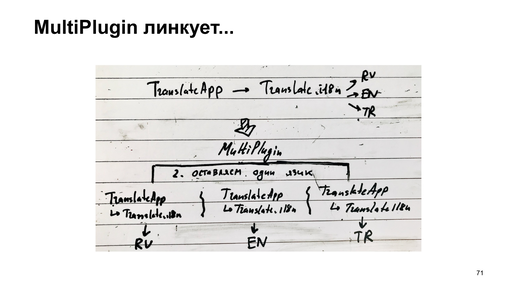 MultiPlugin линкует...
TranslateApp → Translate.i18n
RV
EN
TR
MultiPlugin
2. оставляем один язык
TranslateApp { TranslateApp { TranslateApp
↳ Translate.i18n ↳ Translate.i18n ↳ Translate i18n
RV EN TR
71